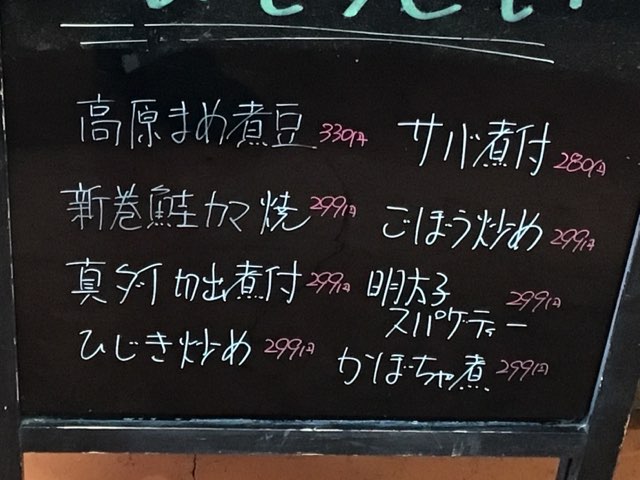 高原まめ煮豆 330円
新巻鮭カマ焼 299円
真ダイ切出煮付 299円
ひじき炒め 299円
サバ煮付 280円
ごぼう炒め 299円
明太子
スパゲティー 299円
かぼちゃ煮 299円